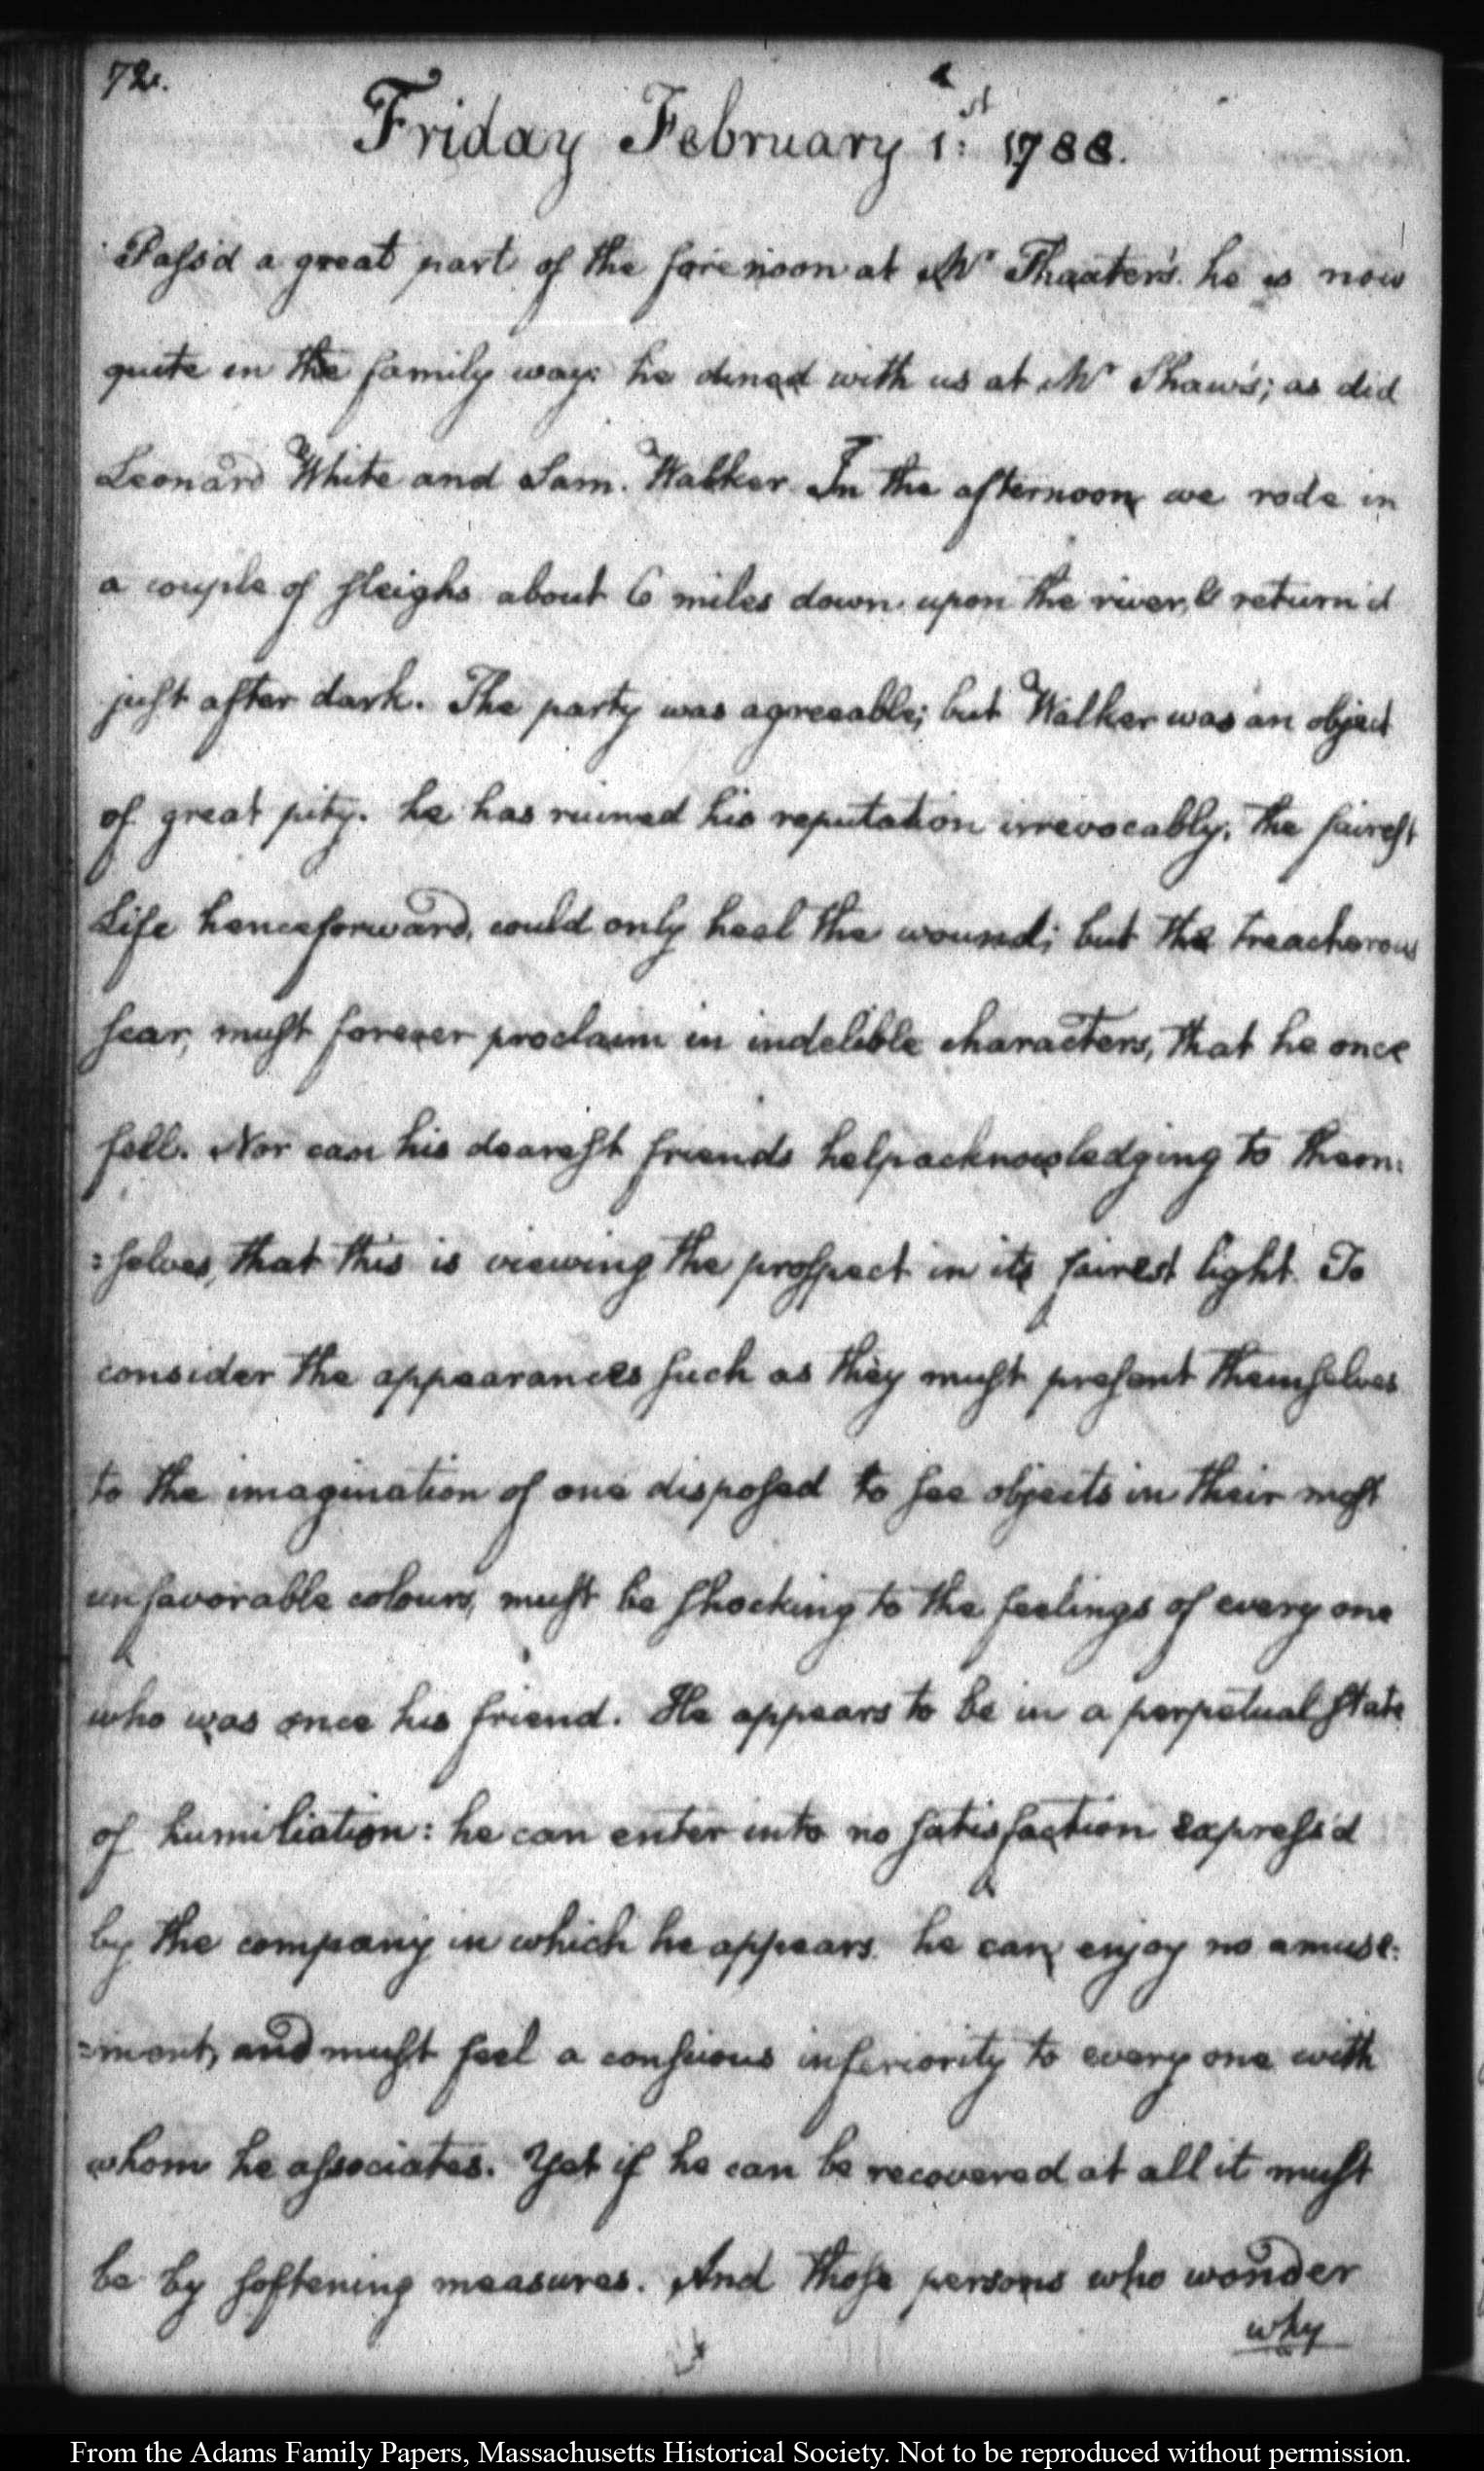 72.
Friday February 1:st 1788.
Pass'd a great part of the forenoon at Mr Thaxter's. he is now
quite in the family way: he dined with us at Mr Shaw's; as did
Leonard White and Sam. Walker. In the afternoon we rode in
a couple of sleighs about 6 miles down upon the river, & return'd
just after dark. The party was agreeable; but Walker was an object
of great pity. he has ruined his reputation irrevocably. the fairest
Life henceforward, could only heal the wound; but the treacherous
scar, must forever proclaim in indelible characters, that he once
fell. Nor can his dearest friends help acknowledging to them:
:selves, that this is viewing the prospect in its fairest light. To
consider the appearances such as they must present themselves
to the imagination of one disposed to see objects in their most
unfavorable colours, must be shocking to the feelings of every one
who was once his friend. He appears to be in a perpetual state
of humiliation: he can enter into no satisfaction express'd
by the company in which he appears. he can enjoy no amuse:
:ment, and must feel a conscious inferiority to every one with
whom he associates. Yet if he can be recovered at all it must
be by softening measures. And those persons who wonder
why
From the Adams Family Papers, Massachusetts Historical Society. Not to be reproduced without permission.